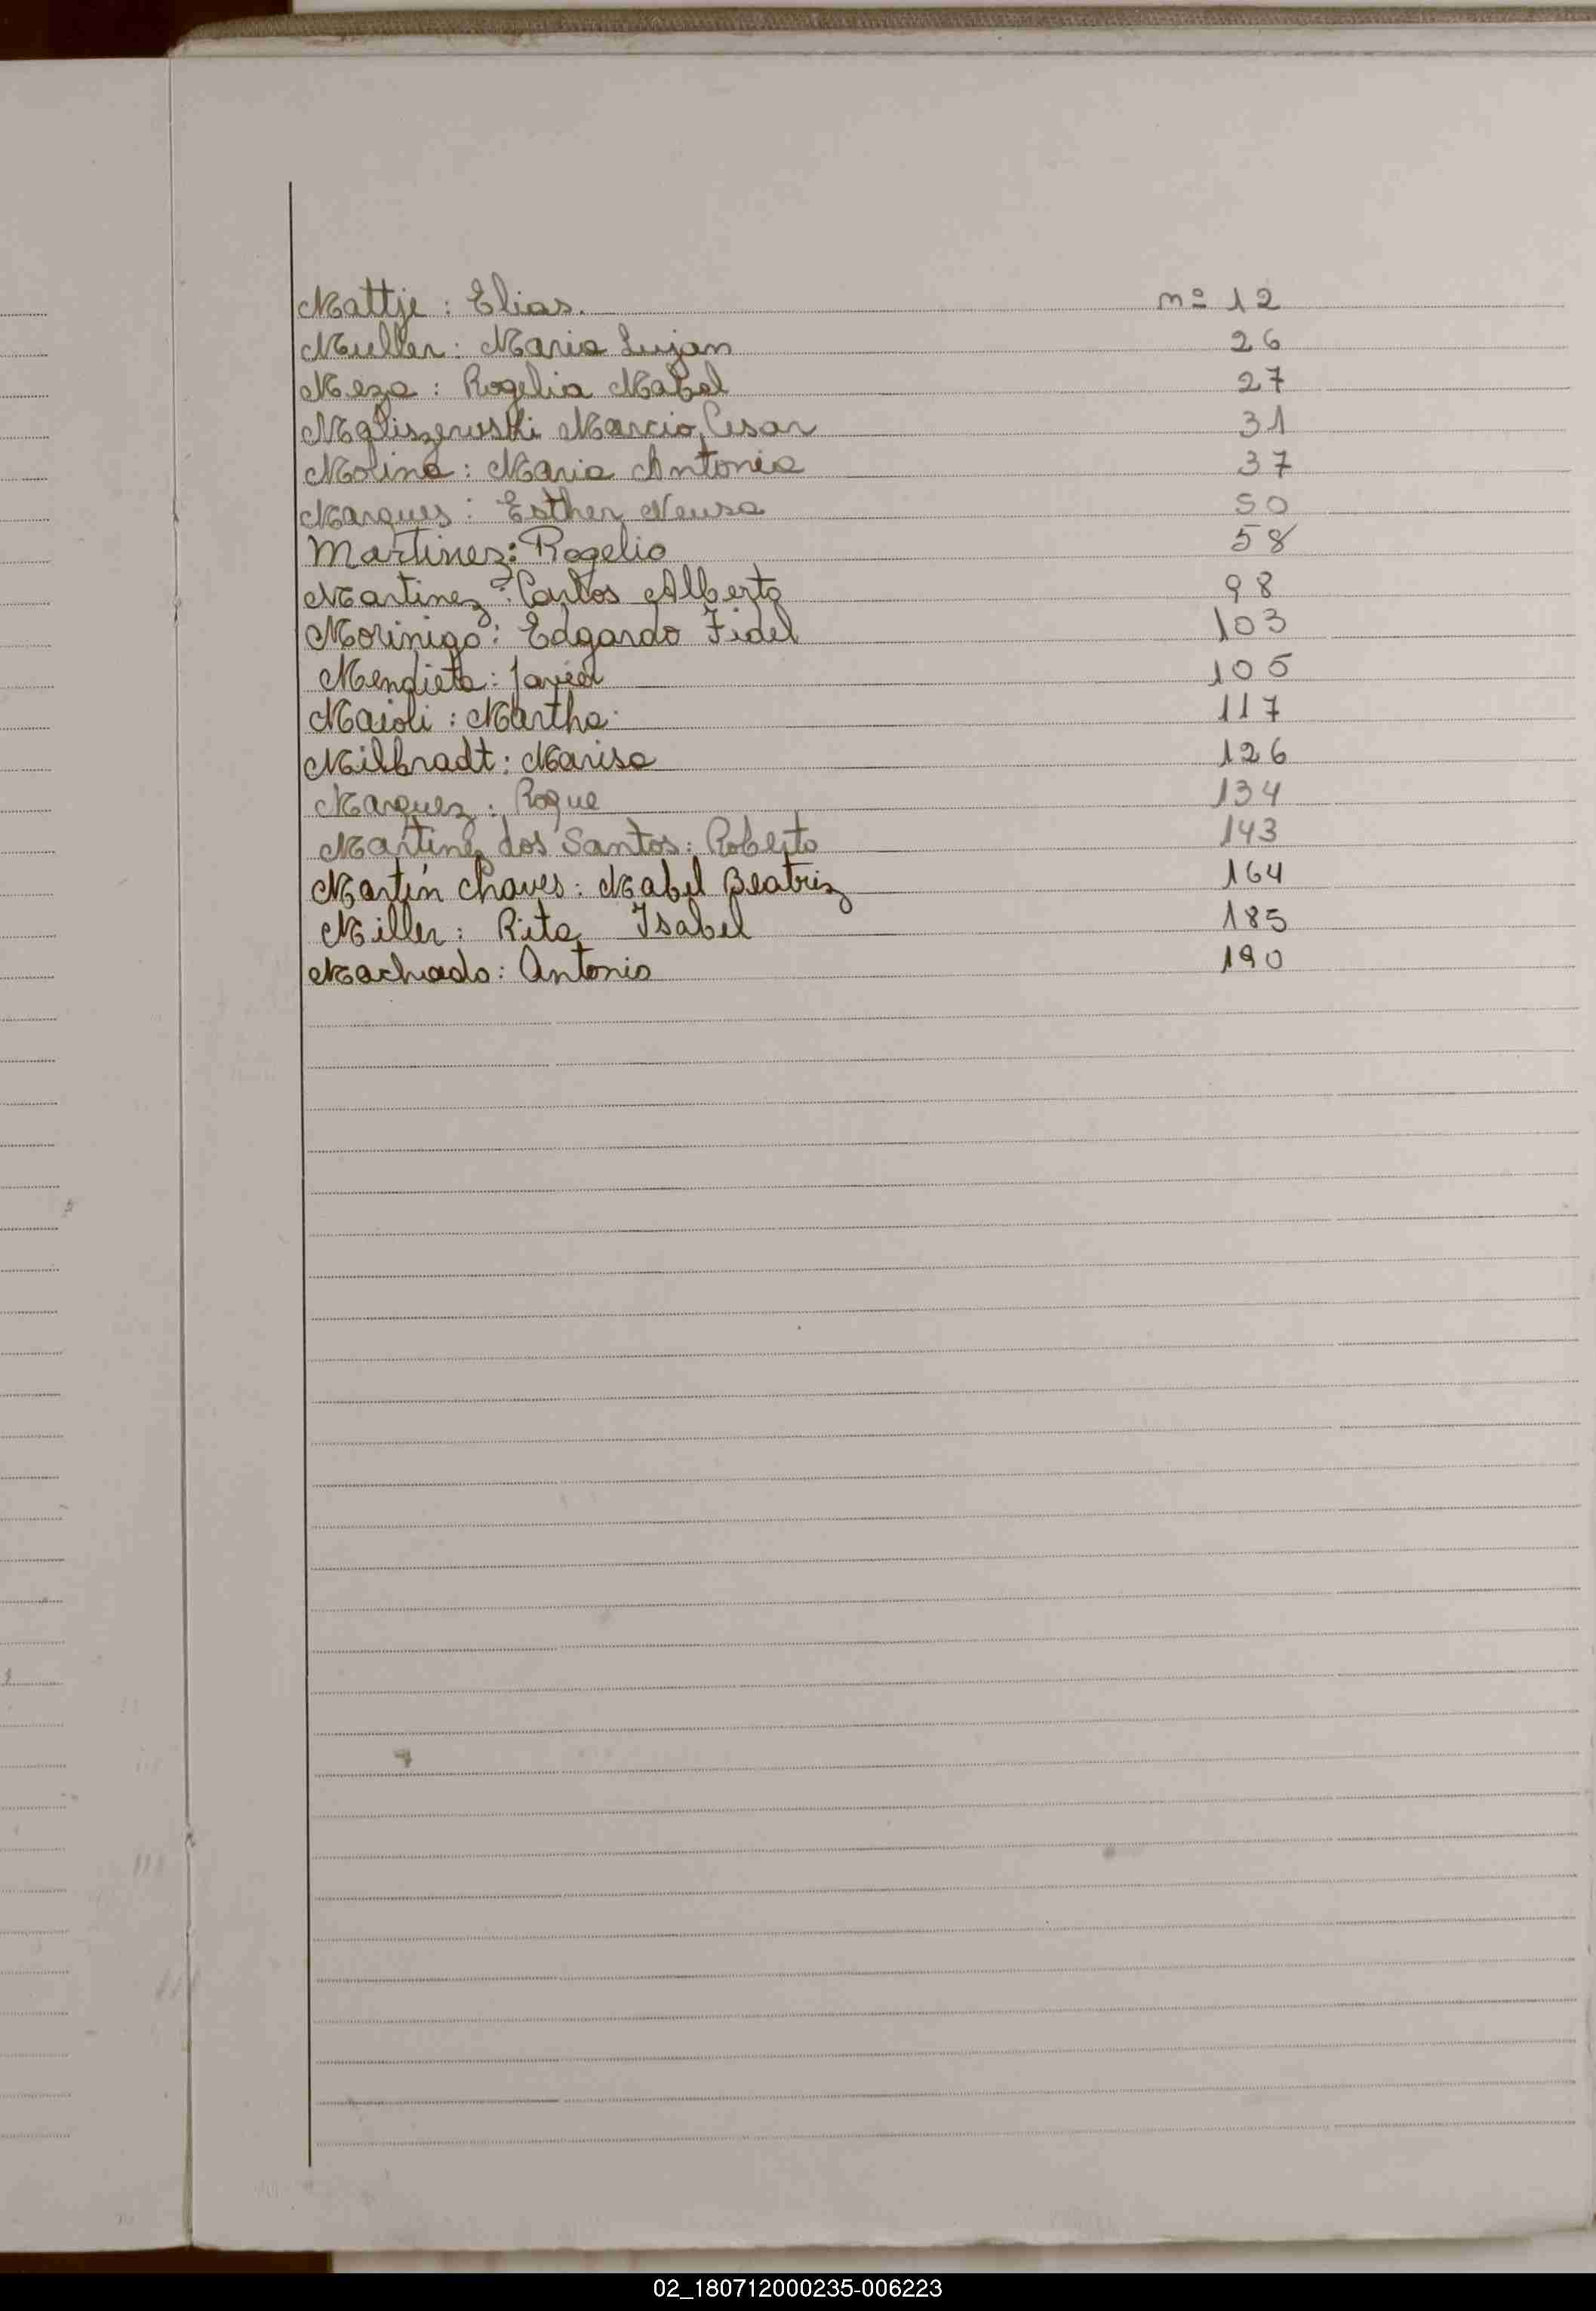 Mattje : Elias. nº 12
Muller : Maria Lujan 26
Meza : Rogelia Mabel 27
Marcio Cesar 31
Molina : Maria Antonia 37
Marques : Esther Neusa 50
Martinez : Rogelio 58
Martinez : Carlos Alberto 98
Morinigo : Edgardo Fidel 103
Mendieta : Javier 105
Maioli : Martha. 117
Milbradt : Marisa 126
Marquez : Roque 134
Martinez dos Santos : Roberto 143
Martín Chaves : Mabel Beatriz 164
Miller : Rita Isabel 185
Machado : Antonio 190
02_180712000235-006223